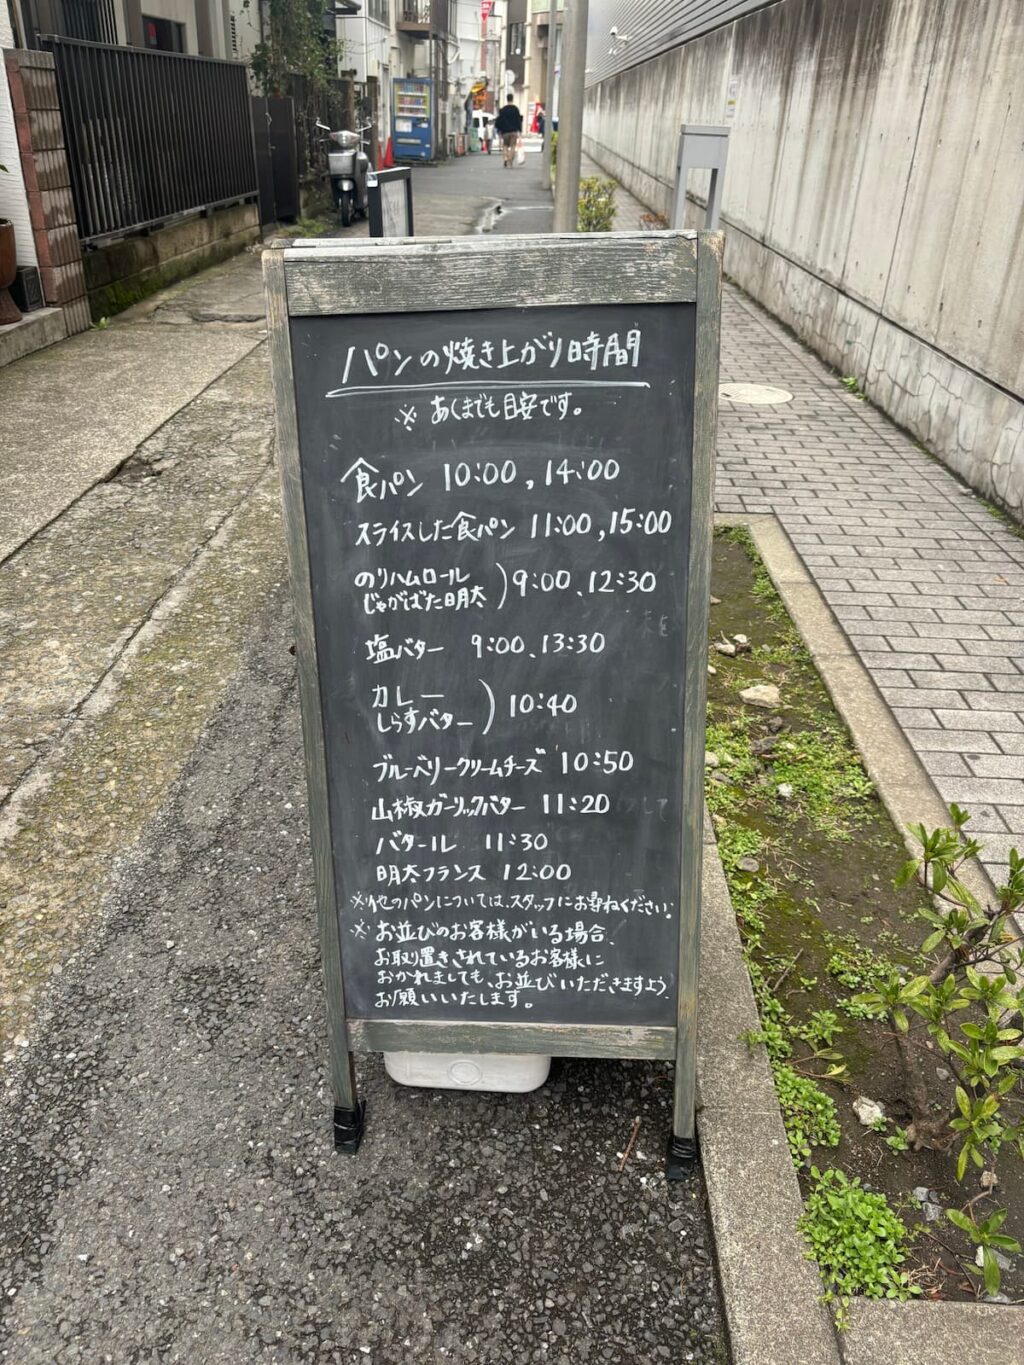 パンの焼き上がり時間
※あくまでも目安です。
食パン 10:00, 14:00
スライスした食パン 11:00, 15:00
のりハムロール
じゃがばた明太 ) 9:00、12:30
塩バター 9:00、13:30
カレー
しらすバター ) 10:40
ブルーベリークリームチーズ 10:50
山椒ガーリックバター 11:20
バタール 11:30
明太フランス 12:00
※他のパンについては、スタッフにお尋ねください。
※お並びのお客様がいる場合、
お取り置きされているお客様に
おかれましても、お並びいただきますよう、
お願いいたします。